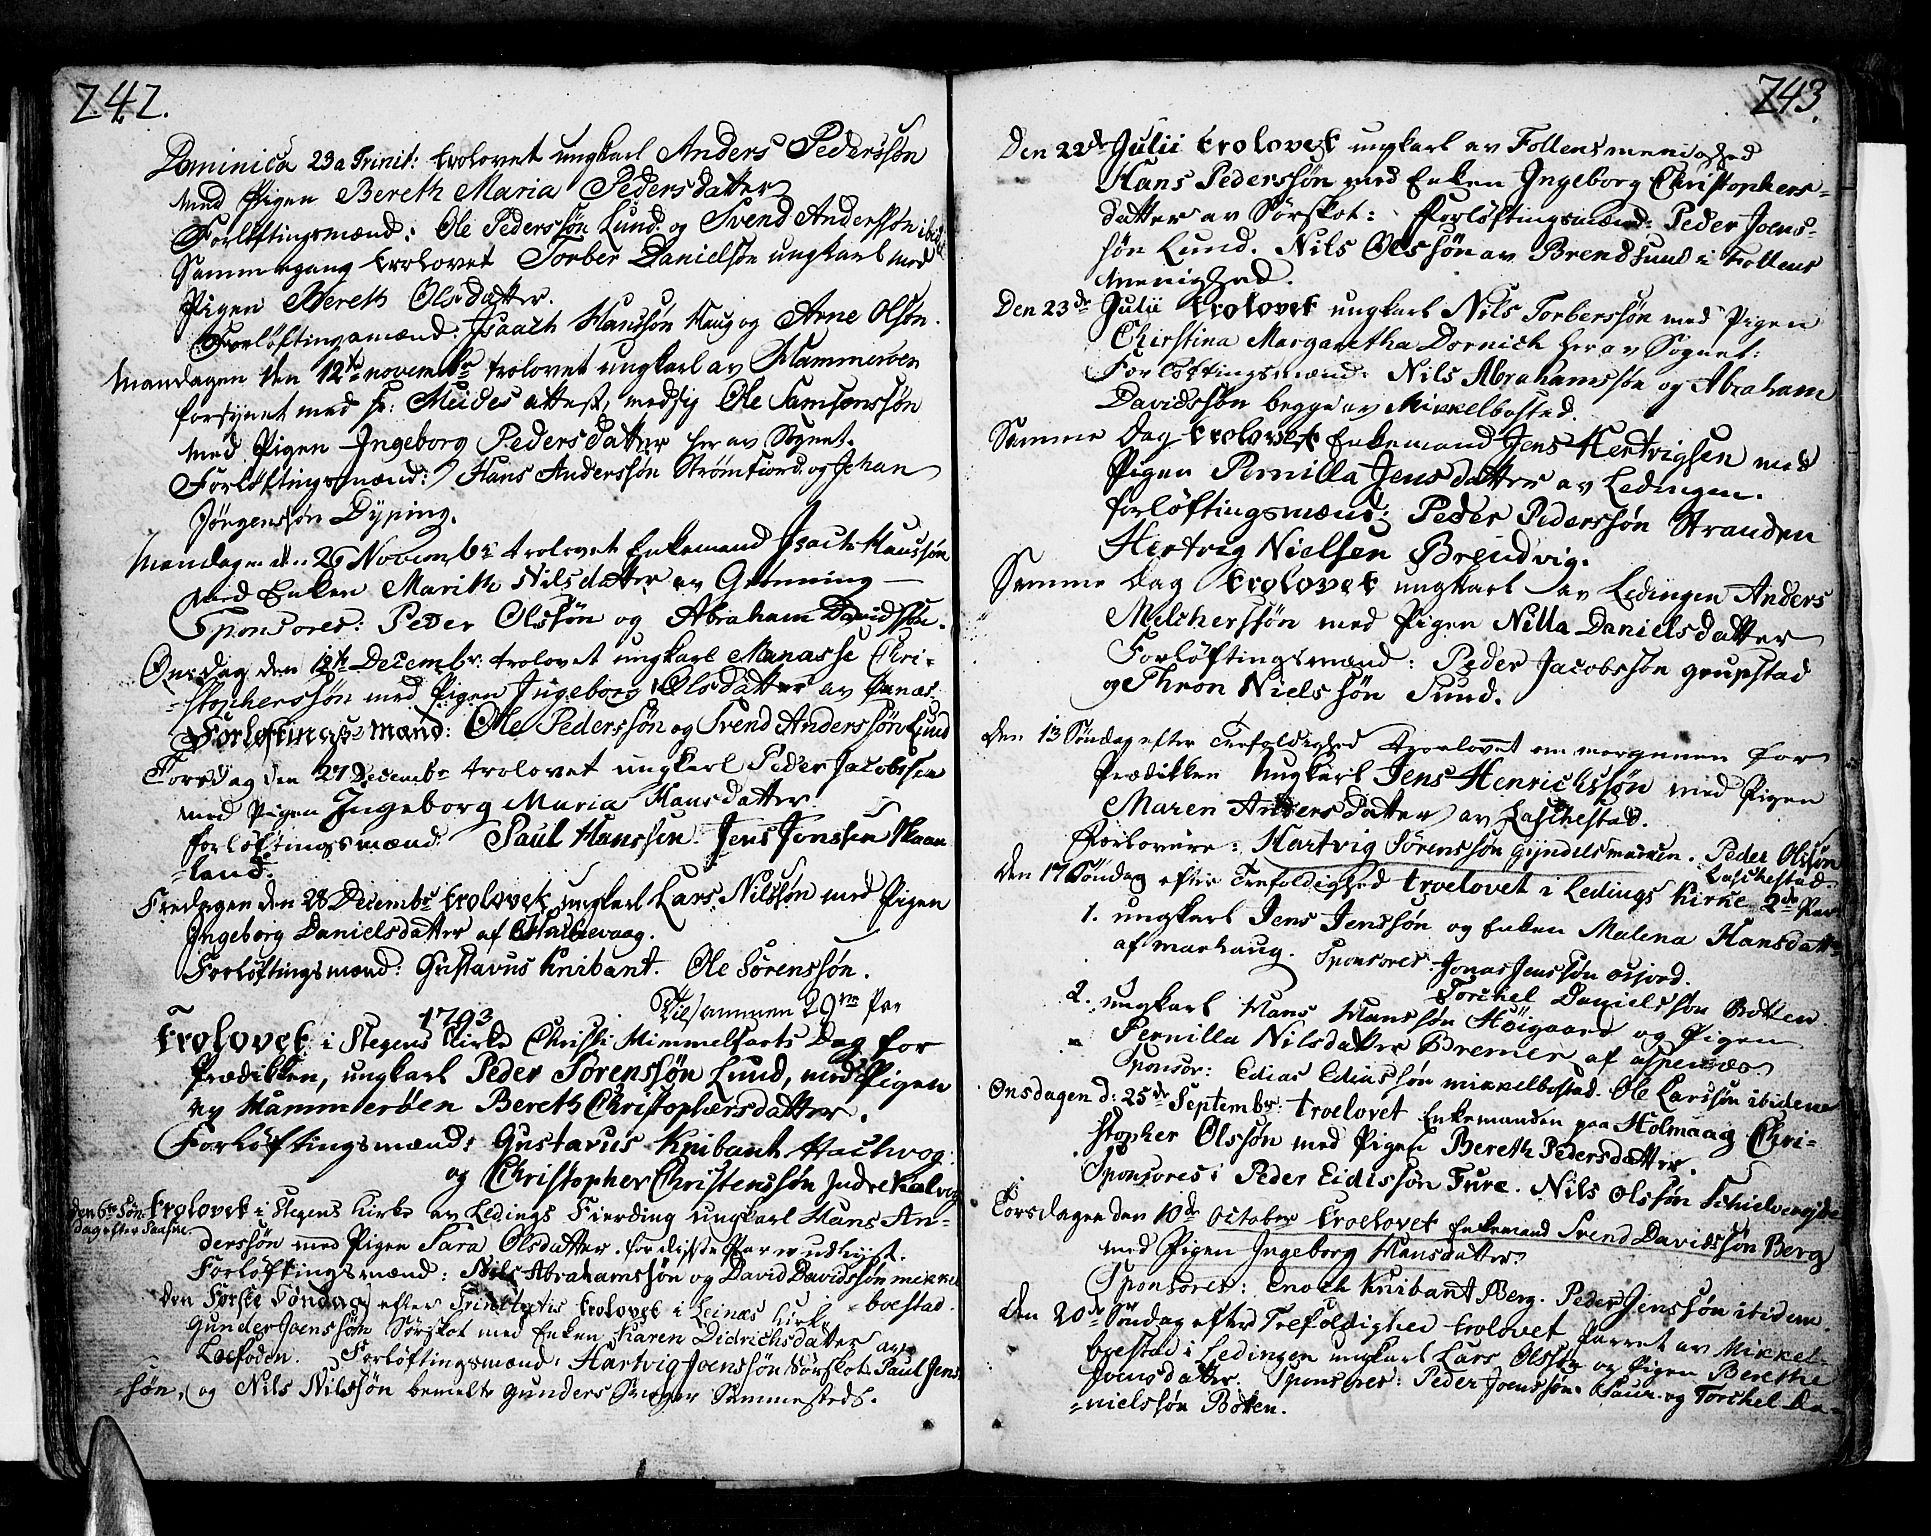 242.
Dominica 23 a Trinit: trolovet ungkarl Anders Pederssøn
med Pigen Bereth Maria Pedersdatter
Forløftingsmænd: Ole Pederssøn Lund og Svend Anderssøn ibid
Sammegang trolovet Torber Danielsøn ungkarl med
Pigen Bereth Olsdatter.
Forløftingsmænd: Isaach Hanssøn Haug og Arne Olsøn.
Mandagen den 12te novembr trolovet ungkarl av Hammerøen
forsynet med hr: Meides attest, medsig Ole Samsonssøn
med Pigen Ingeborg Pedersdatter her av Sognet.
Forløftingsmænd: Hans Anderssøn Strømfiord og Johan
Jørgenssøn Dyping.
Mandagen den 26 Novembr trolovet Enkemand Isach Hanssøn
med Enken Marith Nilsdatter av Grønning
Sponsores: Peder Olssøn og Abraham Davidssøn.
Onsdag den 12te Decembr: trolovet ungkarl Manasse Chri-
-stopherssøn med Pigen Ingeborg Olsdatter av Øenæs.
Forløftingsmænd: Ole Pederssøn og Svend Anderssøn Lund
Torsdag den 27 Decembr trolovet ungkarl Peder Jacobssen
med Pigen Ingeborg Maria Hansdatter.
forløftingsmænd Paul Hanssen. Jens Jonssen Skaan-
-land.
Fredagen den 28 Decembr trolovet ungkarl Lars Nilssøn med Pigen
Ingeborg Danielsdatter af
Forløftingsmænd: Gustavus Knibant. Ole Sørenssøn.
Tilsammen 29ve Par
1793
Trolovet i Stegens Kirke Christi Himmelfarts Dag for
Prædikken, ungkarl Peder Sørenssøn Lund, med Pigen
av Hammerøen Bereth Christophersdatter.
Forløftingsmænd: Gustavus Knibant Hachvog
og Christopher Christenssøn Indre Kalvog
den 6te Søn-
dag efter Paaske
trolovet i Stegens Kirke av Ledings Fierding ungkarl Hans An-
derssøn med Pigen Sara Olsdatter. for disse Par er udlyst.
Forløftingsmænd: Nils Abrahamssøn og David Davidssøn mikkel-
-boestad.
den Første Søndag efter Trinitatis trolovet i Leinæs Kirke
Gunder Joenssøn Sørskot med Enken Karen Didrichsdatter av
Loefoden. Forløftingsmænd: Hartvig Joenssøn Sørskot Paul Jens-
-søn, og Nils Nilssøn bemelte Gunders Svoger Sammesteds.
243.
Den 22de Julii trolovet ungkarl av Foldens menighed
Hans Pederssøn med Enken Ingeborg Christophers-
datter av Sørskot: Forløftingsmænd: Peder Joens-
søn Lund. Nils Olssøn av Brendsund i Foldens
Menighed.
Den 23de Julii trolovet ungkarl Nils Torberssøn med Pigen
Christina Margaretha Dornich her av Sognet:
Forløftingsmænd: Nils Abrahamssøn og Abraham
Davidssøn begge av Mikkelbostad.
Samme Dag trolovet Enkemand Jens Hertvigsen med
Pigen Pernilla Jensdatter av Ledingen.
forløftingsmænd: Peder Pederssøn Stranden
Hertvig Nielsen Brendvig.
Samme Dag trolovet ungkarl av Ledingen Anders
Milcherssøn med Pigen Nilla Danielsdatter
Forløftingsmænd: Peder Jacobssøn grupstad
og Thron Nielssøn Sund.
den 13 Søndag efter Trefoldighed troelovet om morgenen for
Prædikken ungkarl Jens Henrichssøn med Pigen
Maren Andersdatter av Laschestad.
Forlovere: Hartvig Sørenssøn Gyndelsmarken. Peder Olssøn
Laschestad.
den 17 Søndag efter Trefoldighed troelovet i Ledings Kirke 2de Par
1. ungkarl Jens Jenssøn og Enken Malena Hansdatter
af marhaug. Sponsores: Jonas Jenssøn osjord.
Torchel Danielssøn Botten
2. ungkarl Hans Hanssøn Høigaard og Pigen
Pernilla Nilsdatter Bremer af aspenæs
Sponsor: Edias Ediassøn mikkelbostad. Ole Larssøn ibidem
Onsdagen d: 25de Septembr: troelovet Enkemanden paa Holmaag Chri-
stopher Olssøn med Pigen Bereth Pedersdatter.
Sponsores: Peder Eidissøn Fure. Nils Olssøn
Torsdagen den 10de october troelovet Enkemand Svend Davidssøn Berg
med Pigen Ingeborg Hansdatter.
Sponsores: Enoch Knibant Berg. Peder Jenssøn ibidem.
den 20de Søndag efter Trefoldighed trolovet Parret av Mikkel-
boestad i Ledingen ungkarl Lars Olssøn og Pigen Berethe
Joensdatter. Sponsores: Peder Joenssøn Saur. og Torchel Da-
-nielssøn Botten.